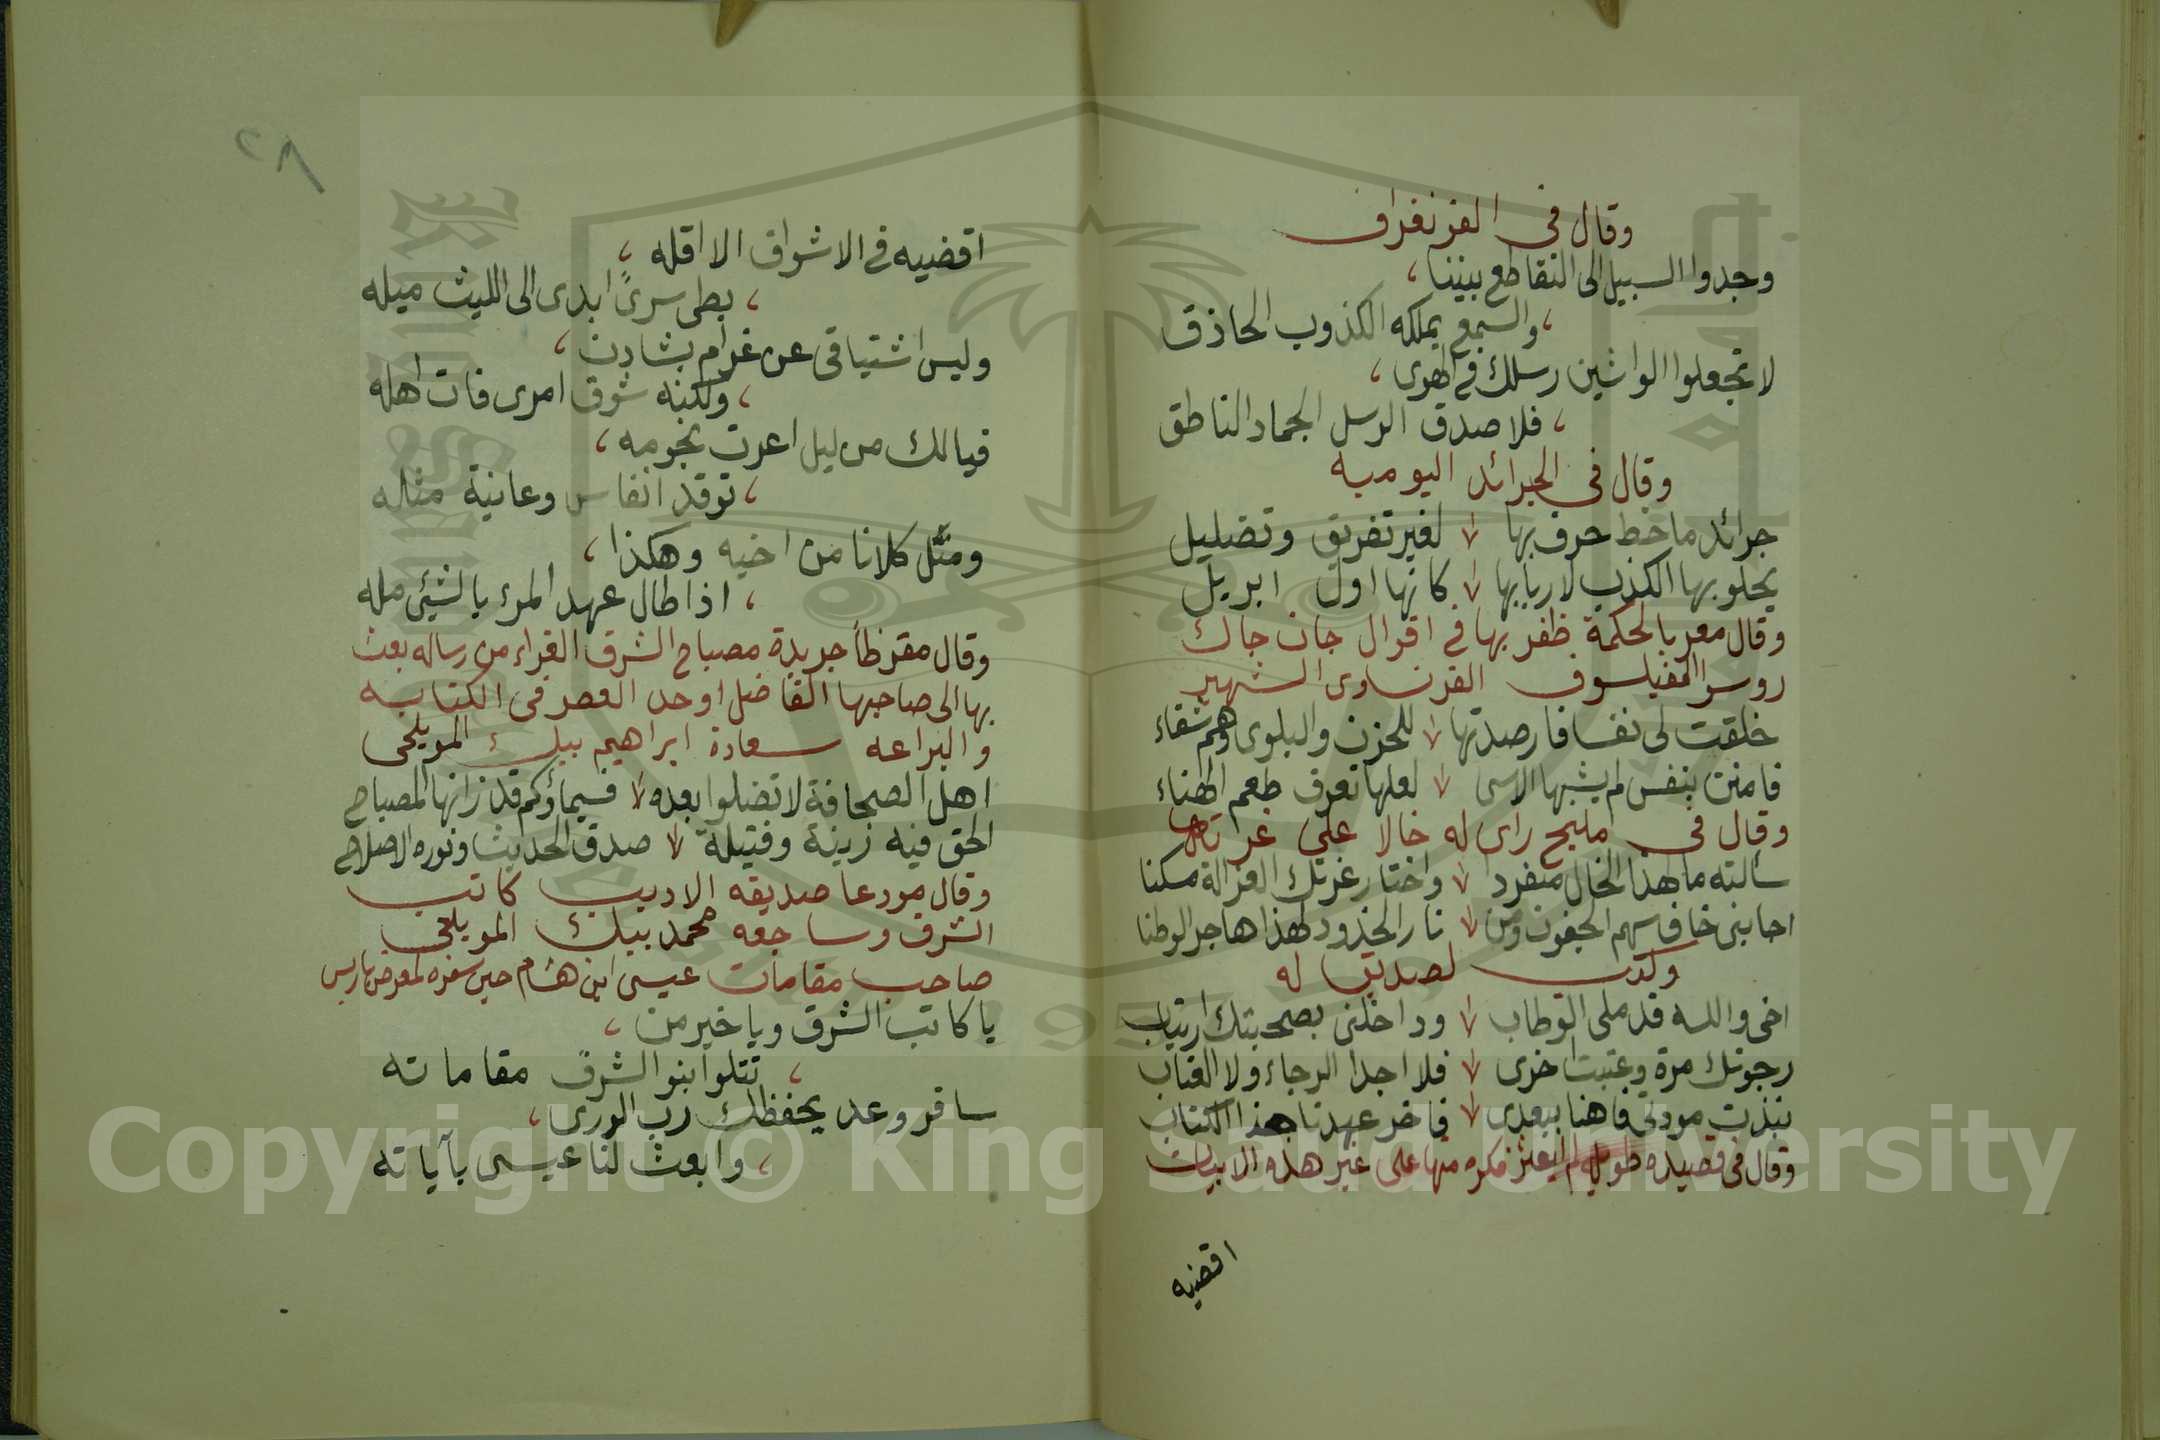 وقال في الفزنغراف
وجدوا السبيل الى التقاطع بيننا ،
، والسمع يملكه الكذوب الحاذق
لا تجعلوا الواشين رسلك في الهوى ،
، فلا صدق الرسل الجماد الناطق
وقال في الجرائد اليومية
جرائد ما خط حرف بها لغير تفريق وتضليل
يحلو بها الكذب لاربابها كانها اول ابريل
وقال معربا لحكمة ظفر بها في اقوال جان جاك
روسو الفيلسوف الفرنساوى الشهير
خلقت لى نفسا فارصدتها للحزن والبلوى وهم شقاء
فامنن بنفس لم يشبها الاسى لعلها تعرف طعم الهناء
وقال في مليح راى له خالا على غرته
سالته ما لهذا الخال منفردا واختار غرتك الغزالة مسكنا
اجابنى خاف سهم الجفون ومن نار الخدود لهذا هاجر الوطنا
وكتب لصديق له
اخى والله قد ملى الوطاب وداخلنى بصحبتك ارتياب
رجوتك مرة وعتبت اخرى فلا اجدا الرجاء ولا العتاب
نبذت مودتى فاهنا ببعدى فاخر عهدنا هذا الكتاب
وقال في قصيده طويله لم يعثر فكره منها على غير هذه الابيات
اقضيه
٢٨
اقضيه في الاشواق الا اقله ،
، بطى سرىً ابدى الى الليث ميله
وليس اشتياقى عن غرام بشادن ،
، ولكنه شوق امرى فات اهله
فيا لك من ليل اعرت نجومه ،
، توقد انفاس وعانية مثله
ومثّل كلانا من اخيه وهكذا ،
، اذا طال عهد المرء بالشيئ مله
وقال مقرظاً جريدة مصباح الشرق الغراء من رساله بعث
بها الى صاحبها الفاضل اوحد العصر في الكتابه
والبراعه سعادة ابراهيم بيك المويلحى
اهل الصحافة لا تضلوا بعده فسماؤكم قد زانها المصباح
الحق فيه زينة وفتيلة صدق الحديث ونوره الاصلاح
وقال مودعا صديقه الاديب كاتب
الشرق وساجعه محمد بيك المويلحى
صاحب مقامات عيسى ابن هشام حين سفره لمعرض باريس
يا كاتب الشرق ويا خير من ،
، تتلوا بنو الشرق مقاماته
سافر وعد يحفظك رب الورى ،
، وابعث لنا عيسى باآياته
Copyright © King Saud University